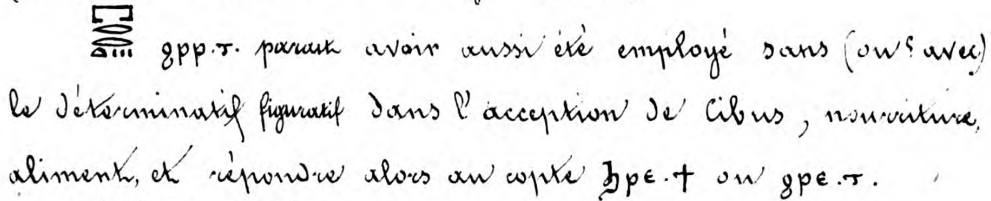 ϩρρ.τ. parait avoir aussi été employé sans (ou avec)
le déterminatif figuratif dans l'acception de Cibus, nourriture,
aliment, et répondre alors au copte ϧρε.ϯ ou ϩρε.τ.